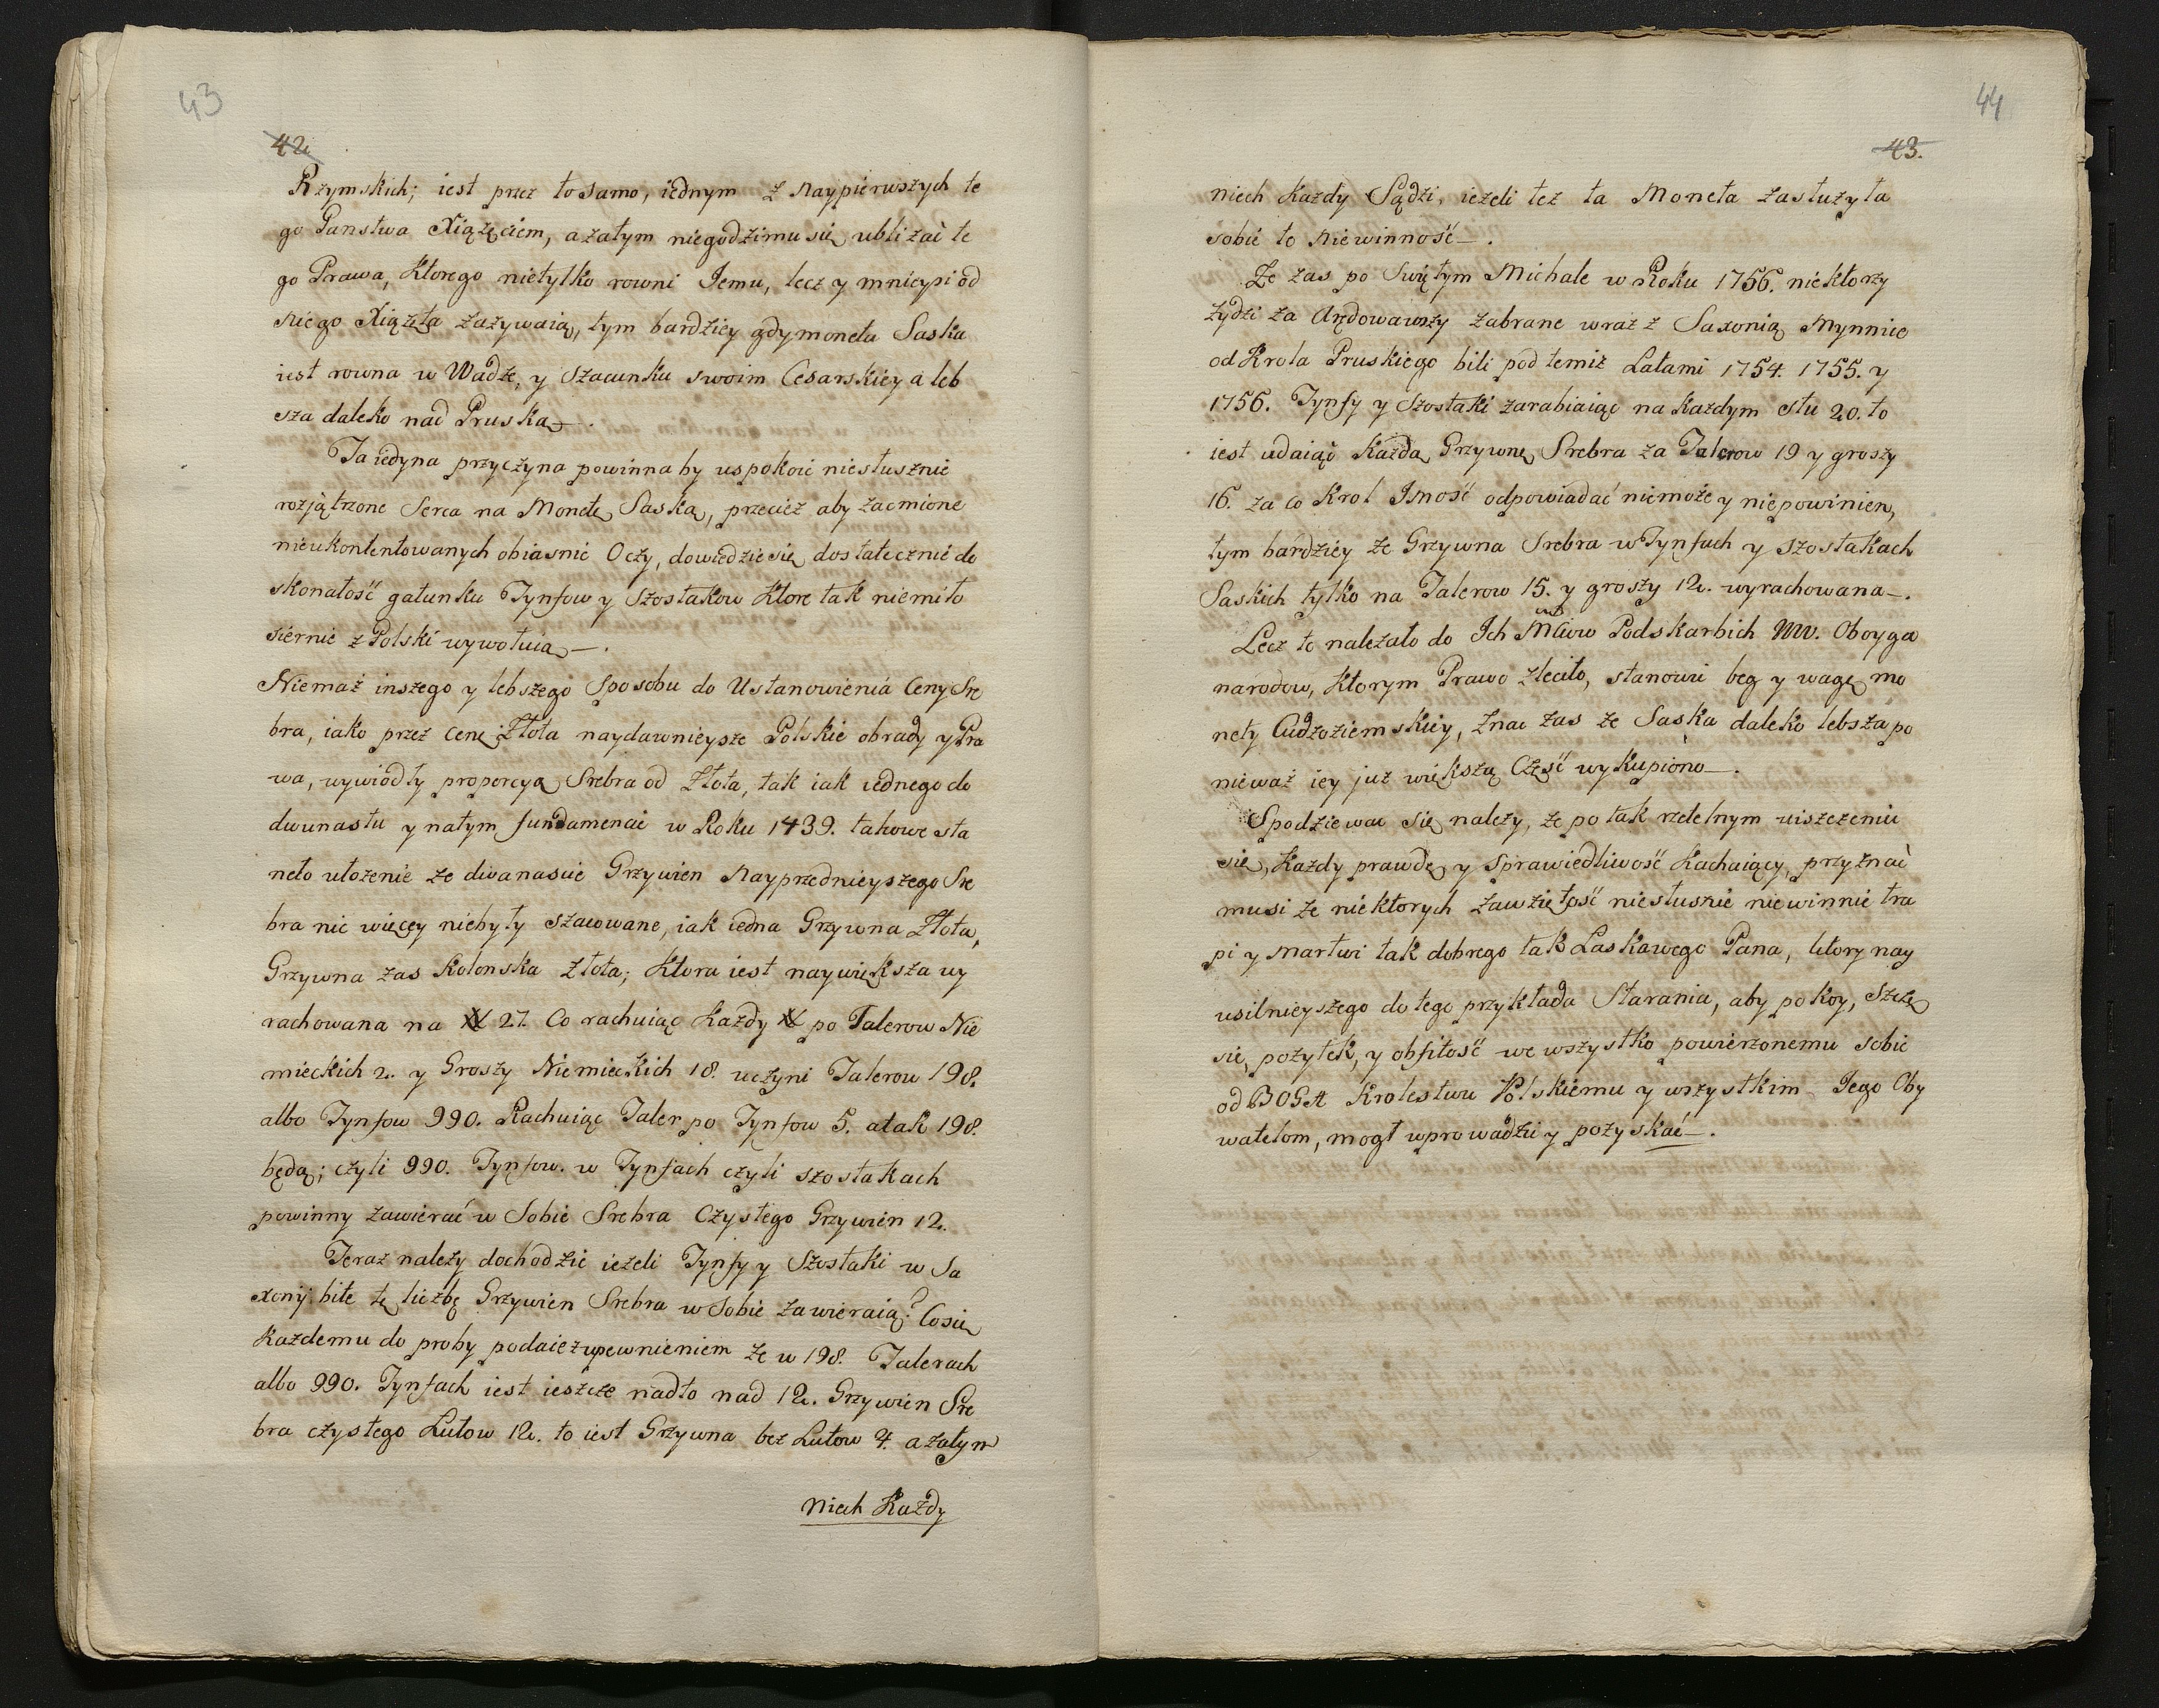 43
42.
Rzymskich; iest przez to samo, iednym z Naypierwszych te
go Panstwa Xiążęciem, a zatym niegodzimu się ubliżać te
go Prawa, Ktorego nietylko rowni Jemu, lecz y mnieysi od
niego Xiążęta zażywaią, tym bardziey gdy moneta Saska
iest rowna w Wadze, y szacunku swoim Cesarskiey a leb
sza daleko nad Pruską—.
Ta iedyna przyczyna powinna by uspokoić niesłusznie
rozjątrzone Serca na Monetę Saską, przecież aby zacmione
nieukontentowanych obiasnić Oczy, dowiedzie się dostatecznie do
skonałość gatunku Tynfow y Szostakow Ktore tak niemiło
siernie z Polski wywołuią—.
Niemaż inszego y lebszego Sposobu do Ustanowienia Ceny Sre
bra, iako przez Cenę Złota naydawnieysze Polskie obrady y Pra
wa, wywiodły proporcyą Srebra od Złota, tak iak iednego do
dwunastu y natym fundamencie w Roku 1439. takowe sta
neło ułożenie że dwanascie Grzywien Nayprzednieyszego Sre
bra nic więcey niebyły szacowane, iak iedna Grzywna Złota,
Grzywna zas Kolonska Złota; Ktora iest naywiększa wy
rachowana na # 27. Co rachuiąc Każdy # po Talerow Nie
mieckich 2. y Groszy Niemieckich 18. uczyni Talerow 198.
albo Tynfow 990. Rachuiąc Taler po Tynfow 5. atak 198.
będą; czyli 990. Tynfow. w Tynfach czyli szostakach
powinny zawierać w Sobie Srebra Czystego Grzywien 12.
Teraz należy dochodzić ieżeli Tynfy y Szostaki w Sa
xonij bite tę liczbę Grzywien Srebra w Sobie zawieraią? Co się
Każdemu do proby podaie z upewnieniem że w 198. Talerach
albo 990. Tynfach iest ieszcze nadto nad 12. Grzywien Sre
bra czystego Lutow 12. to iest Grzywna bez Lutow 4. a zatym
niech Każdy
44
43.
niech Każdy Sądzi, ieżeli też ta Moneta zasłużyła
sobie te Niewinność—.
Że zas po Swiętym Michale w Roku 1756. niektorzy
żydzi za Arędowawszy zabrane wraz z Saxonią Mynnice
od Krola Pruskiego bili pod temiż Latami 1754. 1755. y
1756. Tynfy y Szostaki zarabiaiąc na Każdym stu 20. to
iest udaiąc Każdą Grzywnę Srebra za Talerow 19 y groszy
16. za co Krol Jmość odpowiadać niemoże y niepowinien,
tym bardziey że Grzywna Srebra w Tynfach y Szostakach
Saskich tylko na Talerow 15. y groszy 12. wyrachowana—.
Lecz to należało do Ich Podskarbich WW. Oboyga
narodow, Ktorym Prawo zleciło, stanowić beg y wagę mo
nety Cudzoziemskiey, znać zas że Saska daleko lebsza po
nieważ iey już większą Część wykupiono—.
Spodziewac się należy, że po tak rzetelnym uiszczeniu
się, Każdy prawdę y sprawiedliwość Kachaiący, przyznać
musi że niektorych zawziętość niesłusznie niewinnie tra
pi y martwi tak dobrego tak Laskawego Pana, ktory nay
usilnieyszego do tego przykłada Starania, aby pokoy, szczę
sie, pożytek, y obfitość we wszystko powierzonemu sobie
od BOGA Krolestwu Polskiemu y wszystkim Jego Oby
watelom, mogł wprowadzić y pozyskać—.